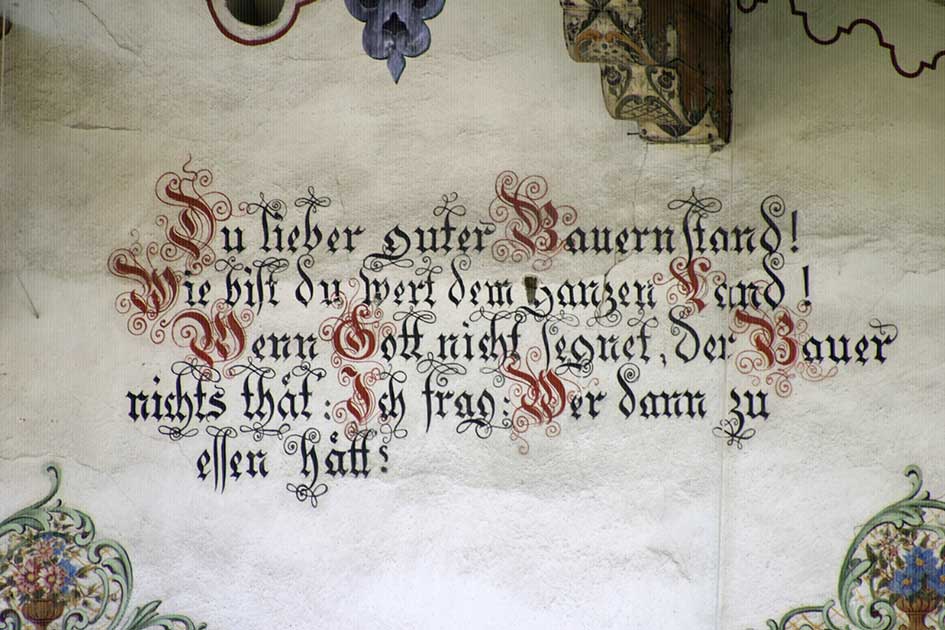 Du lieber guter Bauernstand!
Wie bist du wert dem ganzen Land!
Wenn Gott nicht segnet, der Bauer
nichts thät: Ich frag: Wer dann zu
essen hätt?